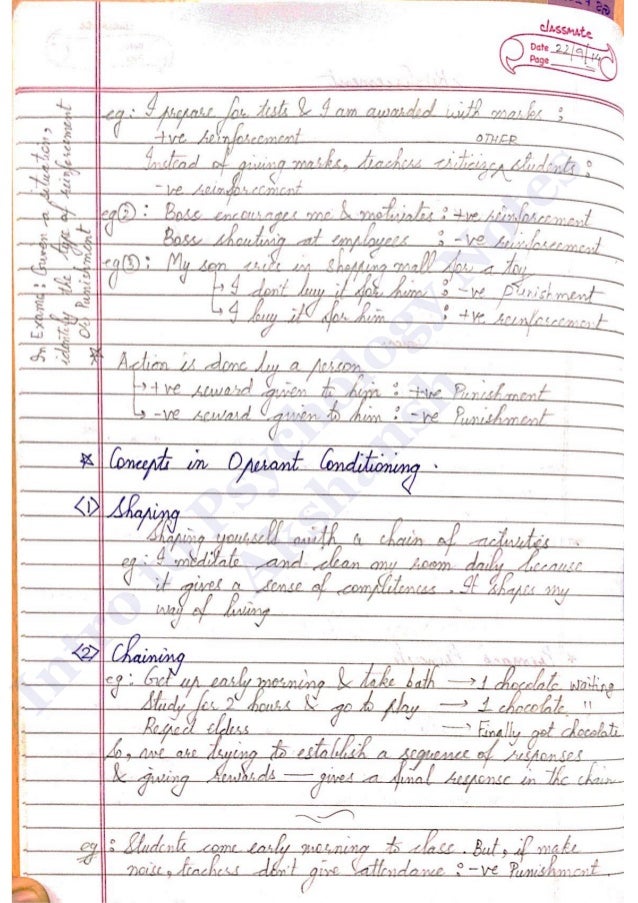 classmate
Date 22/9/14
Page
eg: I prepare for tests & I am awarded with marks :
+ve reinforcement
OTHER
Instead of giving marks, teachers criticize students :
-ve reinforcement
eg②: Boss encourages me & motivates : +ve reinforcement
Boss shouting at employees : -ve reinforcement
eg③: My son cries in shopping mall for a toy
↳ I don't buy it for him : -ve Punishment
↳ I buy it for him : +ve reinforcement
In Exams: Given a situation,
identify the type of reinforcement
Or Punishment
Action is done by a person
↳ +ve reward given to him : +ve Punishment
↳ -ve reward given to him : -ve Punishment
☆ Concepts in Operant Conditioning.
<1> Shaping
Shaping yourself with a chain of activites
eg: I meditate and clean my room daily because
it gives a sense of completeness. It shapes my
way of living
<2> Chaining
eg: Get up early morning & take bath → 1 chocolate waiting
Study for 2 hours & go to play → 1 chocolate "
Respect elders → Finally got chocolate
So, we are trying to establish a sequence of responses
& giving rewards — gives a final response in the chain
eg: Students come early morning to class. But, if make
noise, teachers don't give attendance : -ve Punishment.
Intro to Psychology Notes
Akshansh